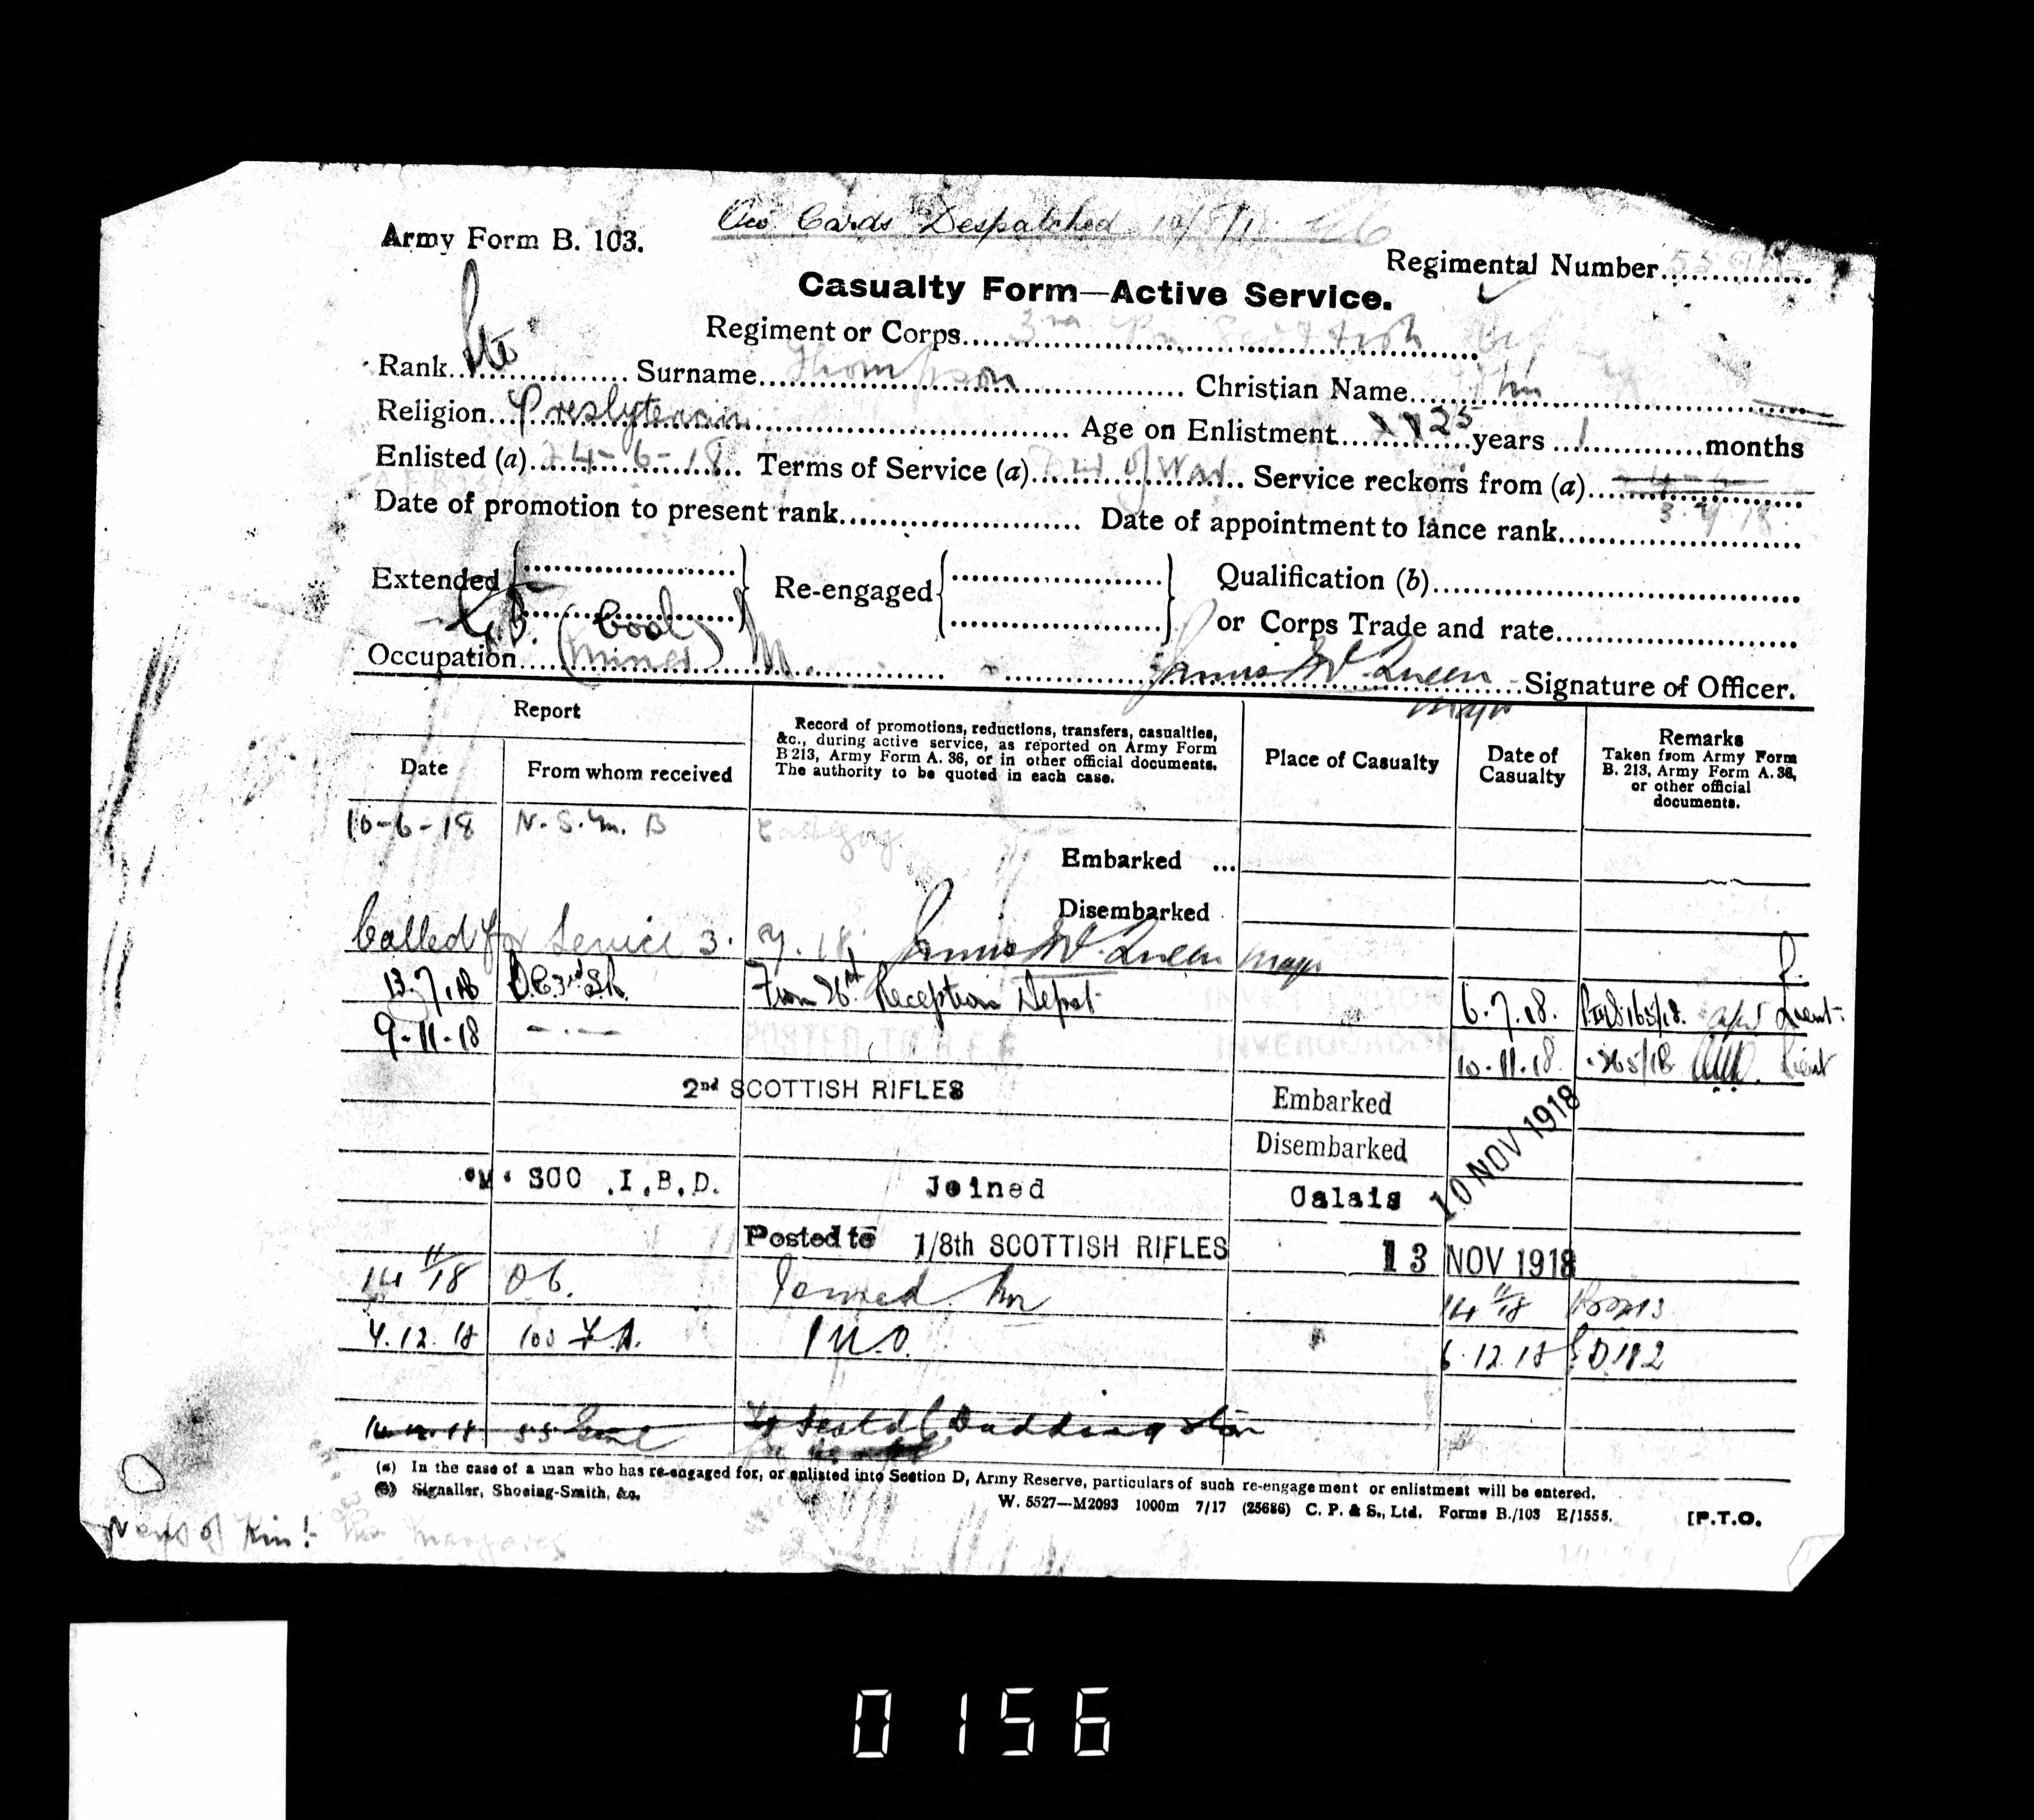 Cards Despatched
Army Form B. 103.
Regimental Number
Casualty Form—Active Service.
Regiment or Corps 3rd Bn Scottish
Rank Pte Surname Thompson Christian Name John
Religion Presbyterian Age on Enlistment 25 years 1 months
Enlisted (a) 24-6-18 Terms of Service (a) of War Service reckons from (a)
3.7.18
Date of promotion to present rank Date of appointment to lance rank
Extended Re-engaged Qualification (b)
or Corps Trade and rate
Occupation (Coal Miner) James McQueen Signature of Officer.
Major
Report
Date From whom received
Record of promotions, reductions, transfers, casualties, &c., during active service, as reported on Army Form B 213, Army Form A. 36, or in other official documents. The authority to be quoted in each case.
Place of Casualty
Date of Casualty
Remarks Taken from Army Form B. 213, Army Form A. 36, or other official documents.
10-6-18 N.S.M.B Category
Embarked ...
Disembarked
Called for Service 3.7.18 James McQueen Major
13.7.18 From 26th Reception Depot 6.7.18. Lieut.
9-11-18 POSTED TO B.E.F INVERGORDON 10.11.18. 265/18 Lieut
2nd SCOTTISH RIFLES Embarked
Disembarked 10 NOV 1918
SCO .I.B.D. Joined Calais
Posted to 1/8th SCOTTISH RIFLES 13 NOV 1918
14 11/18 O.C. Joined Bn 14 11/18 B213
7.12.18 103 F.A. 6.12.18
(a) In the case of a man who has re-engaged for, or enlisted into Section D, Army Reserve, particulars of such re-engagement or enlistment will be entered.
(B) Signaller, Shoeing-Smith, &c.
W. 5527—M2093 1000m 7/17 (25686) C. P. & S., Ltd. Forms B./103 E/1555. [P.T.O.
Next of Kin! Margaret
0156